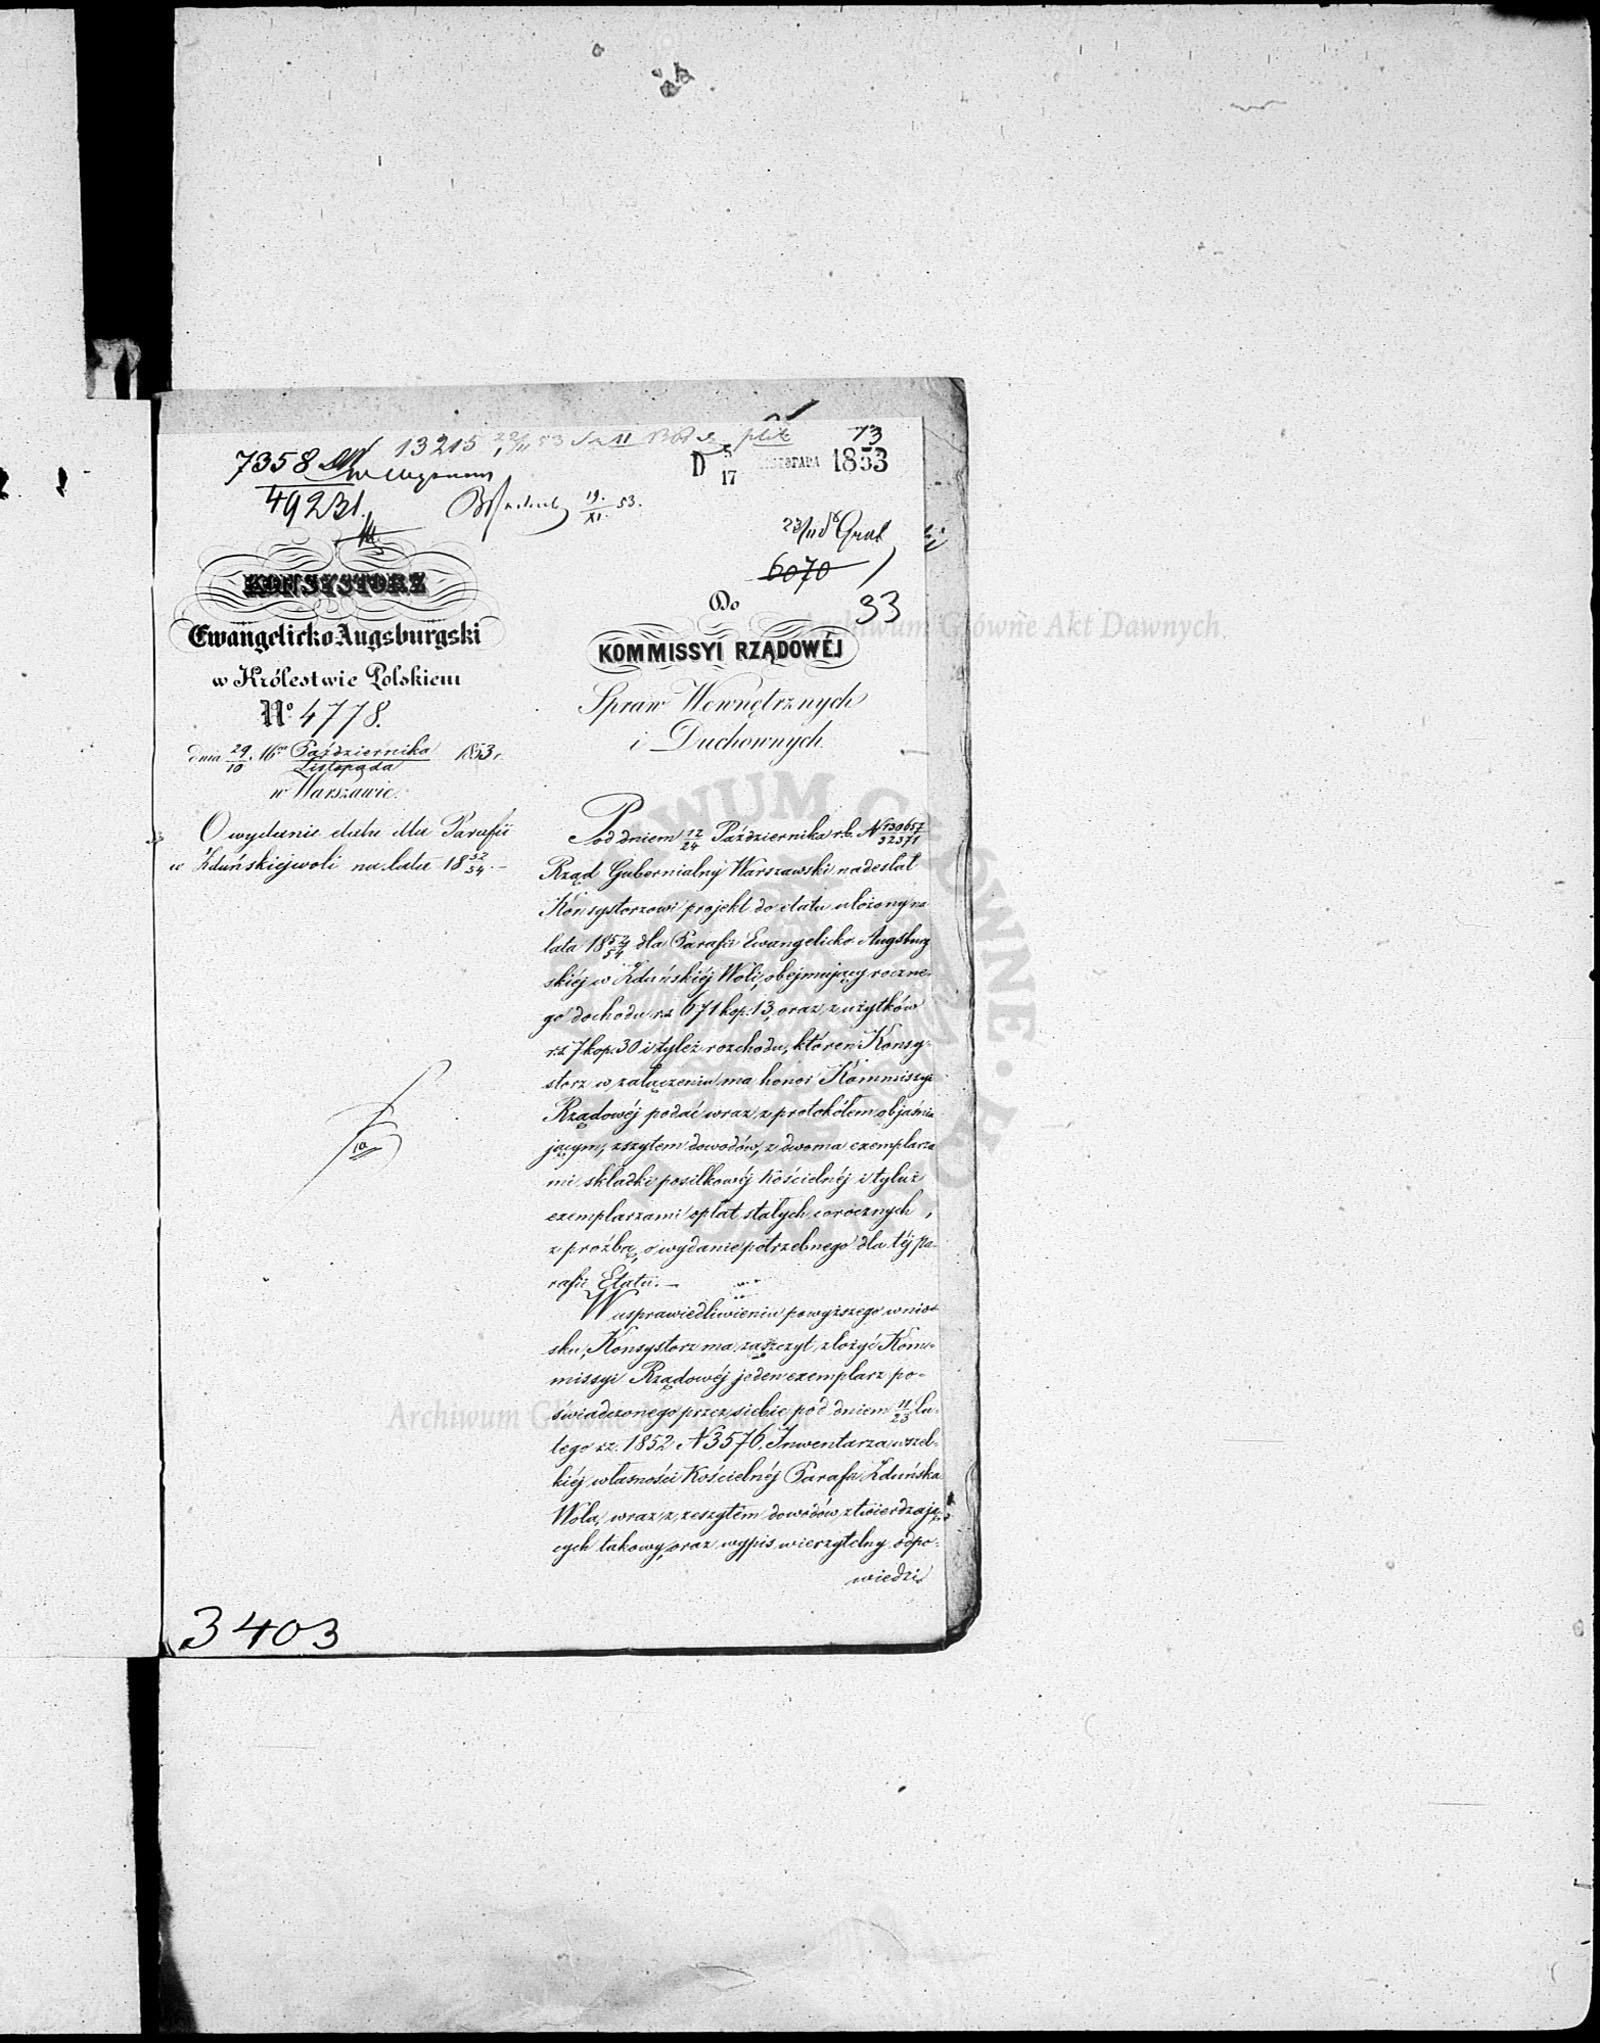 73
7358
13215
49231.
D 5/17 1853
19/XI. 53.
6070
33
KONSYSTORZ
Ewangelicko-Augsburgski
w Królestwie Polskiem
No. 4778.
dnia 29/10. Października/Listopada 1853 r.
w Warszawie.
O wydanie etatu dla Parafii
w Zduńskiejwoli na lata 18 52/54. –
Do
KOMMISSYI RZĄDOWÉJ
Spraw Wewnętrznych
i Duchownych.
Pod dniem 12/24 Października r.b. N 130657/32371
Rząd Gubernialny Warszawski nadesłał
Konsystorzowi projekt do etatu ułożony na
lata 18 52/54 dla Parafii Ewangelicko Augsburg
skiéj w Zduńskiéj Woli, obejmujący roczne-
go dochodu rs 671 kop. 13, oraz z użytków
rs 7 kop. 30 i tyleż rozchodu, któren Konsy-
storz w załączeniu ma honor Kommissyi
Rządowéj podać wraz z protokółem objaśnia
jącym, zszytem dowodów, z dwoma exemplarza
mi składki posiłkowéj Kościelnéj i tyluż
exemplarzami opłat stałych corocznych,
z prożbą, o wydanie potrzebnego dla téj pa-
rafii Etatu. –
W usprawiedliwieniu powyższego wnios-
sku, Konsystorz ma zaszczyt złożyć Kom-
missyi Rządowéj jeden exemplarz po-
świadczonego przez siebie pod dniem 11/23 Lu-
tego rz. 1852 N 3576, Inwentarza wszel-
kiéj własności Kościelnéj Parafii Zduńska
Wola, wraz z zeszytem dowodów, ztwierdzają-
cych takowy, oraz wypis wierzytelny odpo-
wiedzi
3403
Archiwum Główne Akt Dawnych
Archiwum Główne Akt Dawnych